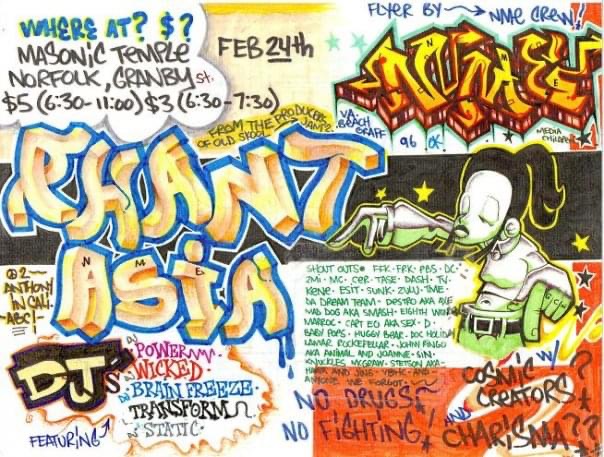 WHERE AT? $?
MASONIC TEMPLE
NORFOLK, GRANBY st.
$5 (6:30-11:00) $3 (6:30-7:30)
FEB 24th
FLYER BY → NME CREW!
NME
VA. BEACH GRAFF
96 OK
MEDIA
FROM THE PRODUCERS
OF OLD SKOOL JAMZ
PHANT
ASIA
2
ANTHONY
IN CALI.
-ABC!-
SHOUT OUTS FFK · FRK · PBS · DC ·
2MI · MC · CER · TASE · DASH · TV ·
KENE · ESIT · SUNK · ZULU · TME ·
DA DREAM TEAM · DESTRO AKA
MAD DOG AKA SMASH · EIGHTH WONDER
MARROC · CAPT EO AKA SEX · D ·
BABY POPS · HUGGY BEAR · DOC HOLIDAY
LAMAR ROCKEFELLAR · JOHN RINGO
AKA ANIMAL AND JOANNE · SIN ·
KNUCKLES MCGRAW · STETSON AKA
AND JINX · AND
ANYONE WE FORGOT
DJ's
DJ POWER
DJ WICKED
DJ BRAIN FREEZE
TRANSFORM
DJ STATIC
FEATURING
NO DRUGS!
NO FIGHTING,
W/
COSMIC ?
CREATORS
AND
CHARISMA??